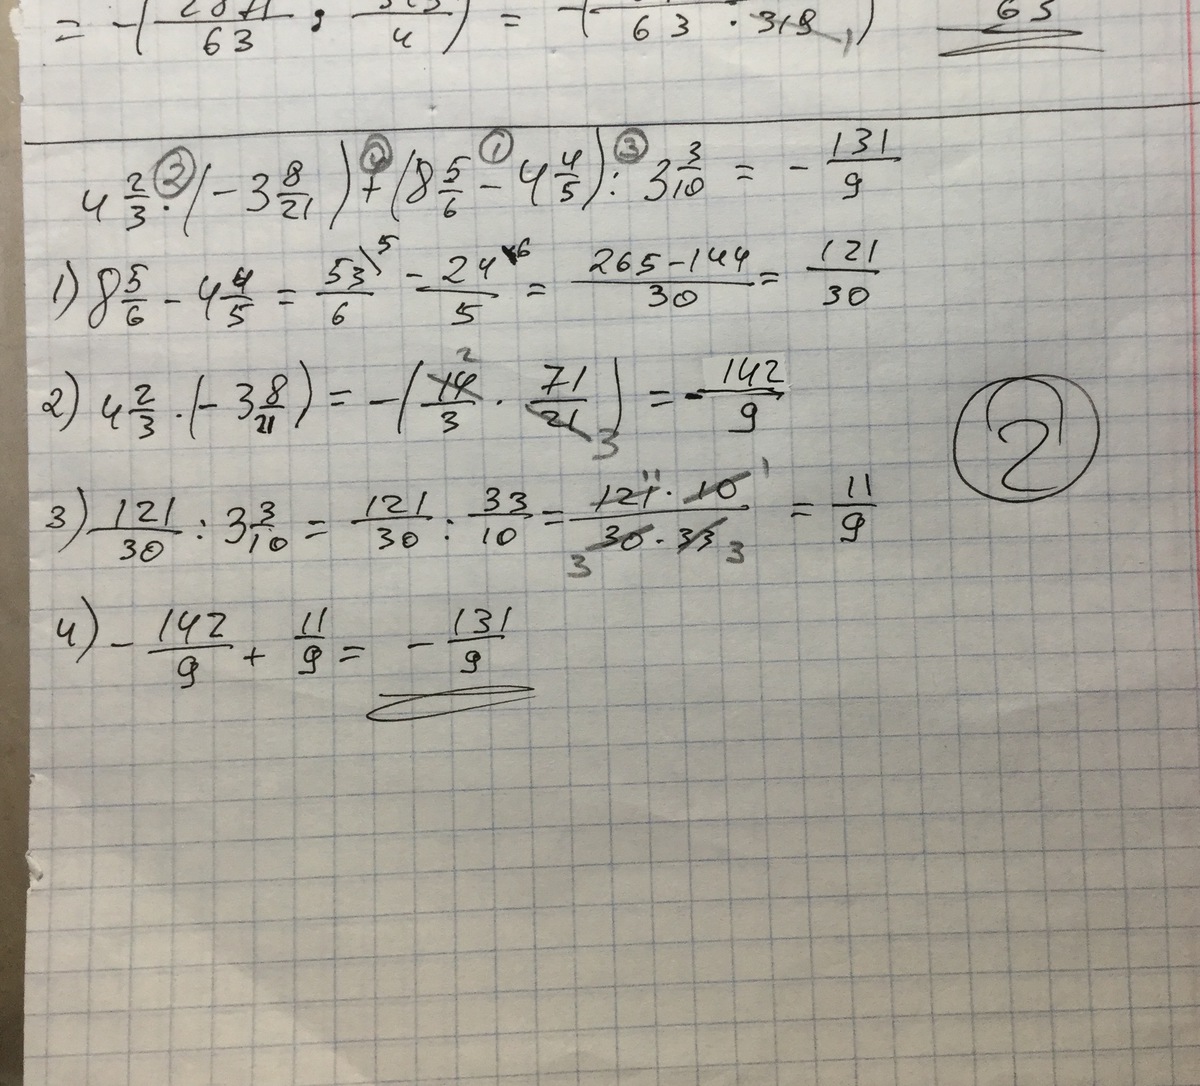 = -( /63 : /4) = -( /63 · 319 1) 63
4 2/3 · (-3 8/21) + (8 5/6 - 4 4/5) : 3 3/10 = - 131/9
2 4 1 3
1) 8 5/6 - 4 4/5 = 53/6 \5 - 24/5 \6 = 265-144/30 = 121/30
2) 4 2/3 · (-3 8/21) = -(14/3 · 71/21) = - 142/9
2 3
3) 121/30 : 3 3/10 = 121/30 : 33/10 = 121·10/30·33 = 11/9
11 1 3 3
4) - 142/9 + 11/9 = - 131/9
2